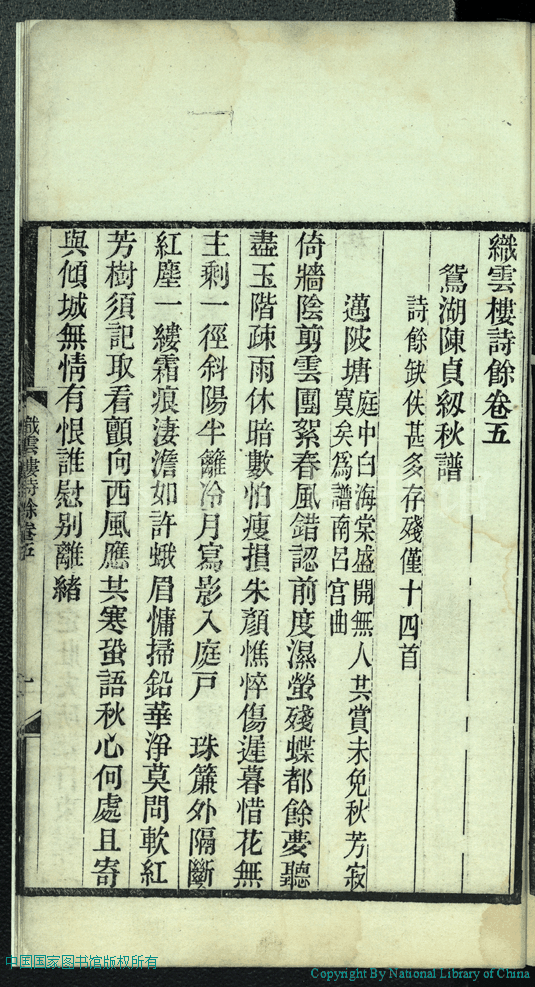 織雲樓詩餘卷五
鴛湖陳貞䋎秋譜
詩餘缺佚甚多存殘僅十四首
邁陂塘 庭中白海棠盛開無人共賞未免秋芳寂
寞矣爲譜南呂宮曲
倚牆陰剪雲團絮春風錯認前度濕螢殘蝶都餘夢聽
盡玉階疎雨休暗數怕瘦損朱顏憔悴傷遲暮惜花無
主剩一徑斜陽半籬冷月寫影入庭戶 珠簾外隔斷
紅塵一縷霜痕淒澹如許蛾眉慵掃鉛華淨莫問軟紅
芳樹須記取看顫向西風應共寒蛩語秋心何處且寄
與傾城無情有恨誰慰別離緒
織雲樓詩餘卷五
一
中国国家图书馆版权所有
Copyright By National Library of China